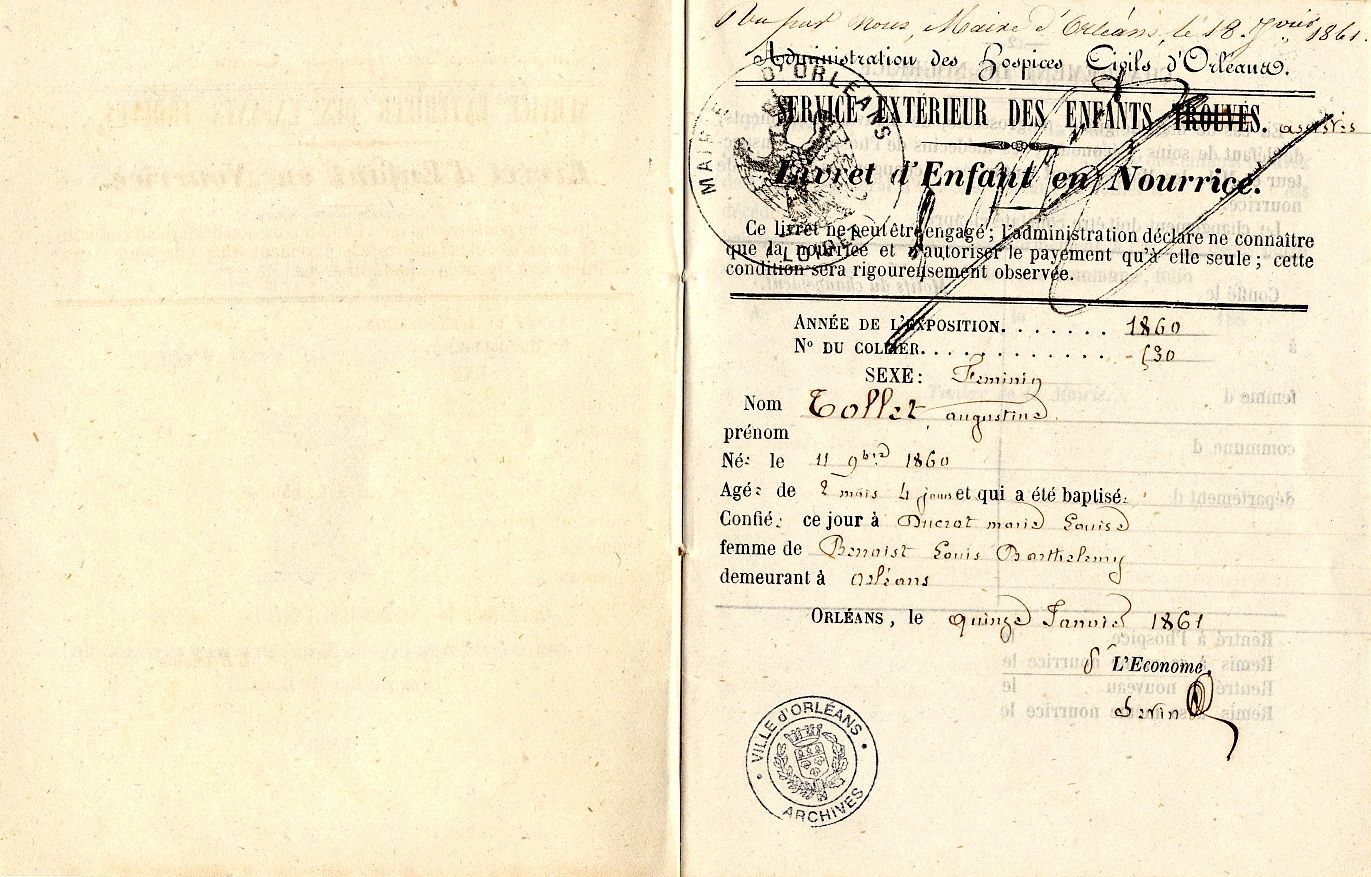 Vu par nous, Maire d'Orléans, le 18 Jvier 1861.
Administration des Hospices Civils d'Orléans.
SERVICE EXTÉRIEUR DES ENFANTS TROUVÉS. assistés
Livret d'Enfant en Nourrice.
Ce livret ne peut être engagé; l'administration déclare ne connaître
que la nourrice et n'autoriser le payement qu'à elle seule; cette
condition sera rigoureusement observée.
MAIRIE D'ORLÉANS
LOIRET
ANNÉE DE L'EXPOSITION. . . . . . . 1860
No DU COLLIER. . . . . . . . . . . . 530
SEXE: Feminin
Nom Tollet augustine
prénom
Né: le 11 9bre 1860
Agé: de 2 mois 4 jours et qui a été baptisé:
Confié: ce jour à Ducrot marie Louise
femme de Benoist Louis Barthelemy
demeurant à Orléans
ORLÉANS, le quinze Janvier 1861
L'Econome,
VILLE d'ORLÉANS
ARCHIVES